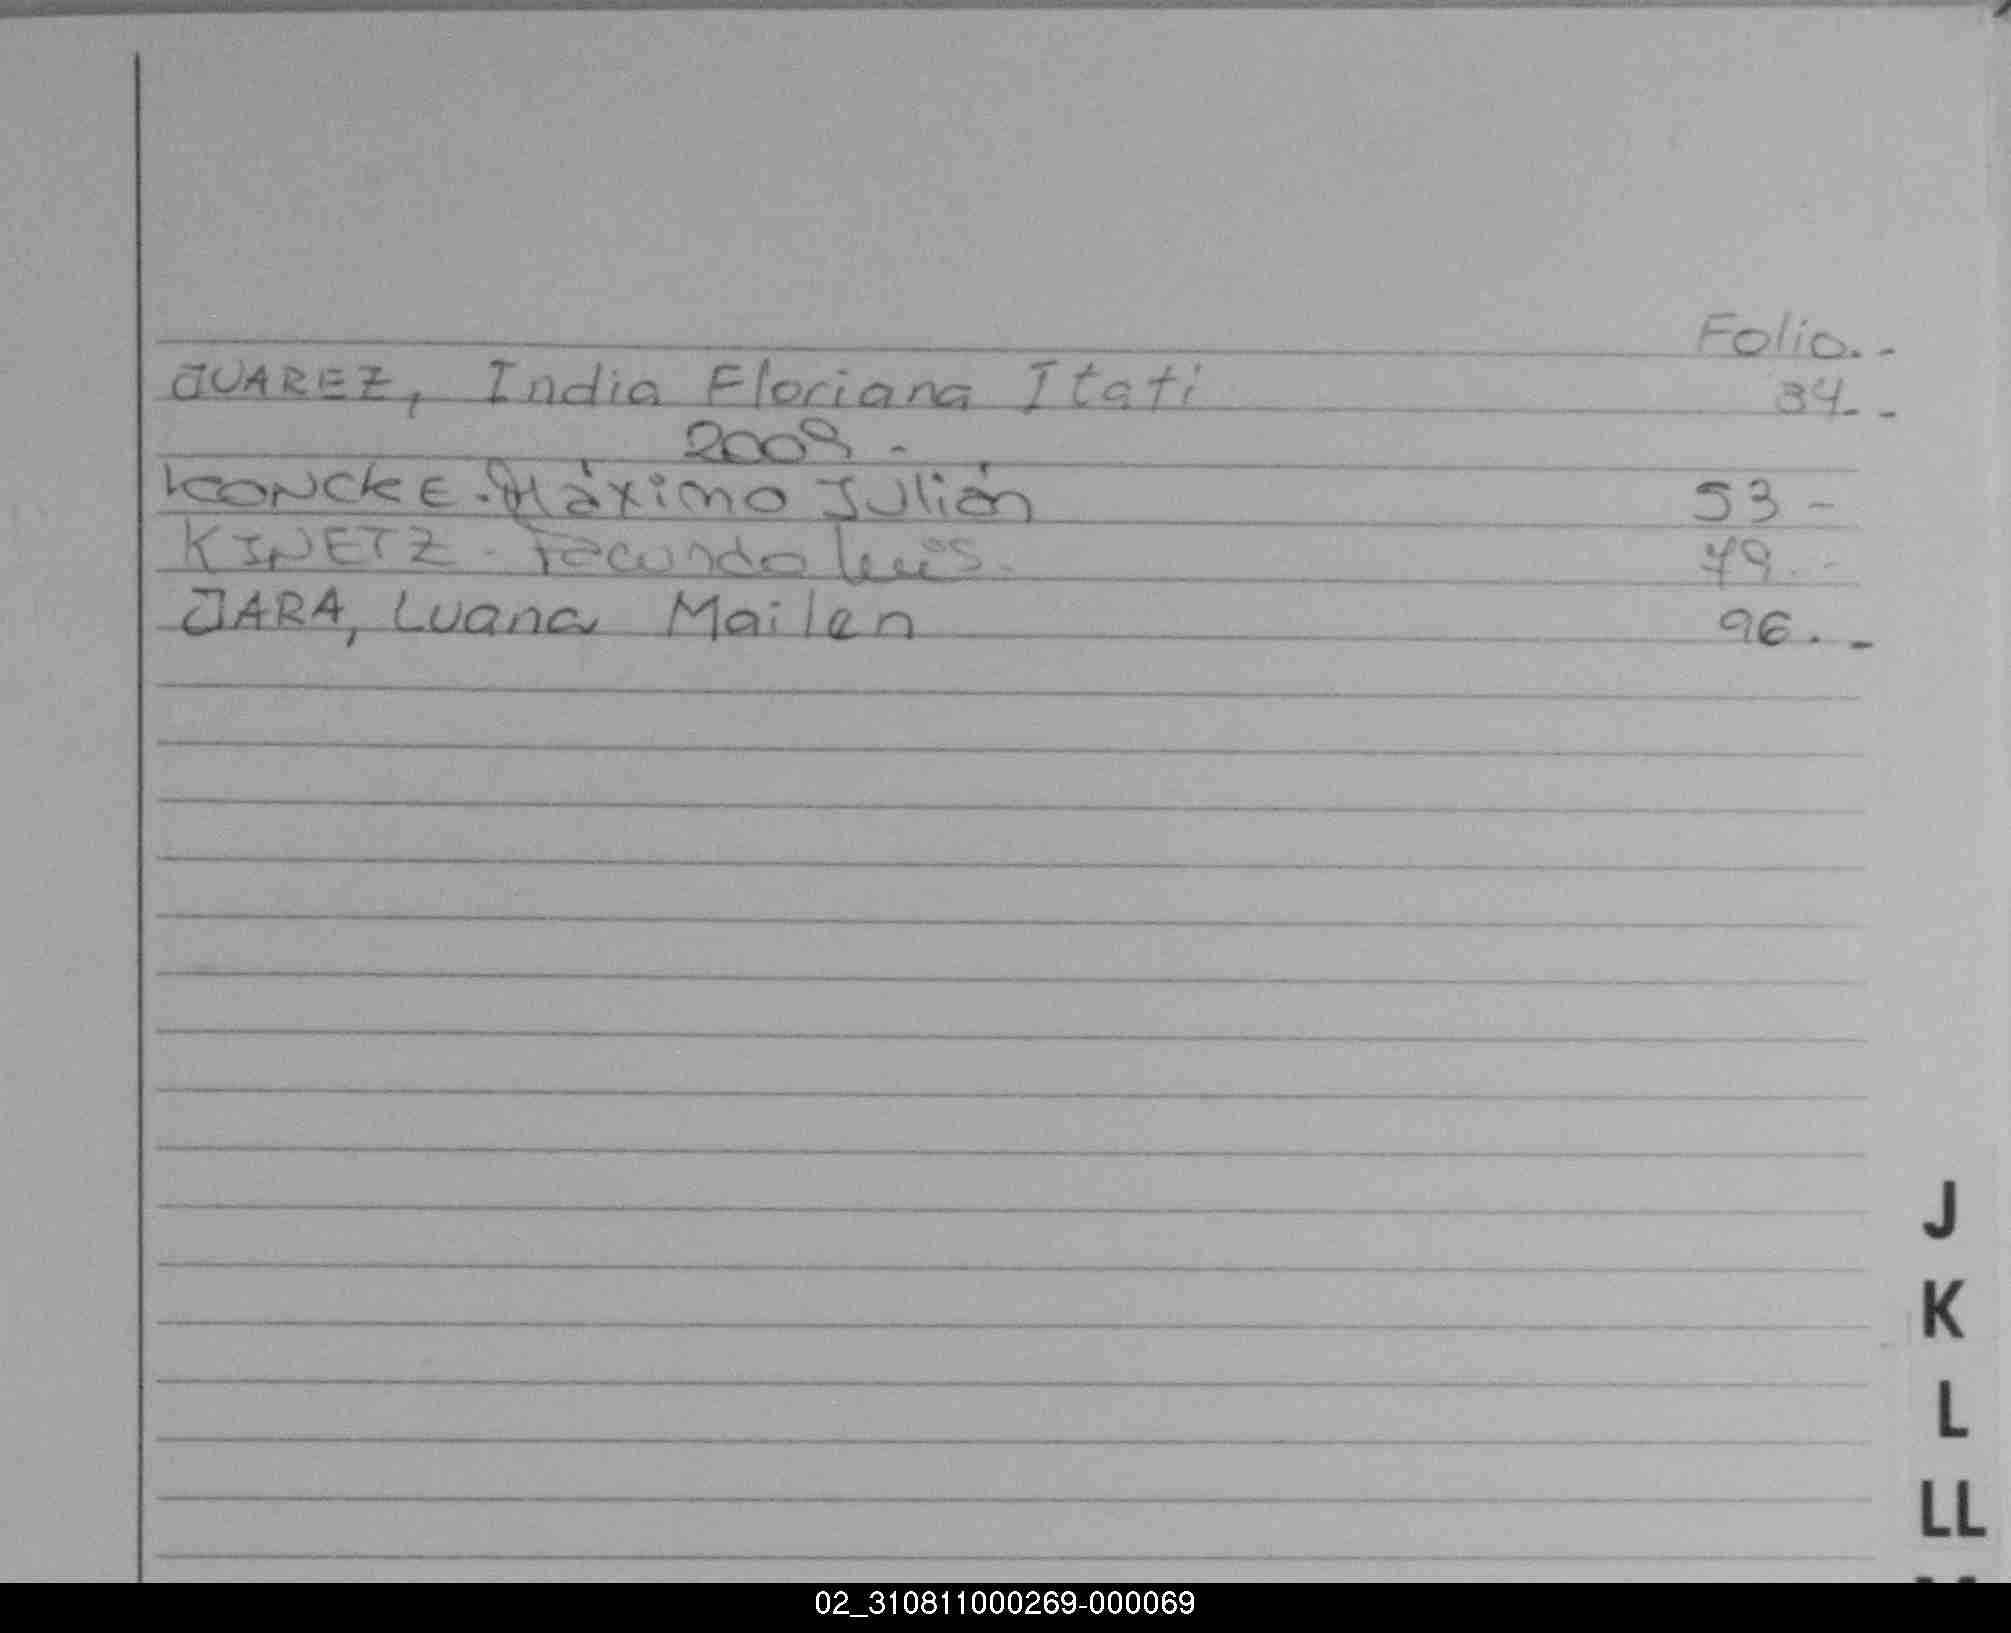 Folio. -
JUAREZ, India Floriana Itati 34. -
2009 -
KONCKE. Máximo Julián 53 -
KINETZ - Facundo Luis. 79. -
JARA, Luana Mailen 96. -
J
K
L
LL
02_310811000269-000069